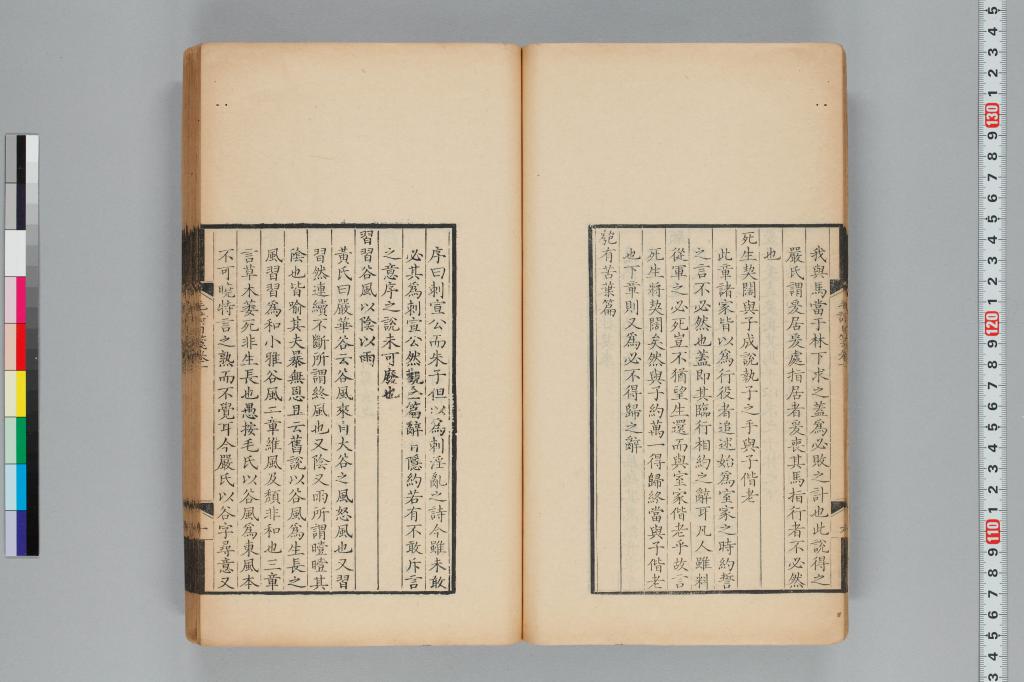 我與馬當于林下求之蓋爲必敗之計也此說得之
嚴氏謂爰居爰處指居者爰喪其馬指行者不必然
也
死生契闊與子成說執子之手與子偕老
此章諸家皆以爲行役者追述始爲室家之時約誓
之言不必然也蓋即其臨行相約之辭耳凡人雖料
從軍之必死豈不猶望生還而與室家偕老乎故言
死生將契闊矣然與子約萬一得歸終當與子偕老
也下章則又爲必不得歸之辭
匏有苦葉篇
序曰刺宣公而朱子但以爲刺淫亂之詩今雖未敢
必其爲刺宣公然觀之篇辭旨隱約若有不敢斥言
之意序之說未可廢也
習習谷風以陰以雨
黃氏曰嚴華谷云谷風來自大谷之風怒風也又習
習然連續不斷所謂終風也又陰又雨所謂曀曀其
陰也皆喻其夫暴無恩且云舊說以谷風爲生長之
風習習爲和小雅谷風二章維風及頹非和也三章
言草木萎死非生長也愚按毛氏以谷風爲東風本
不可曉特言之熟而不覺耳今嚴氏以谷字尋意又
130
120
110